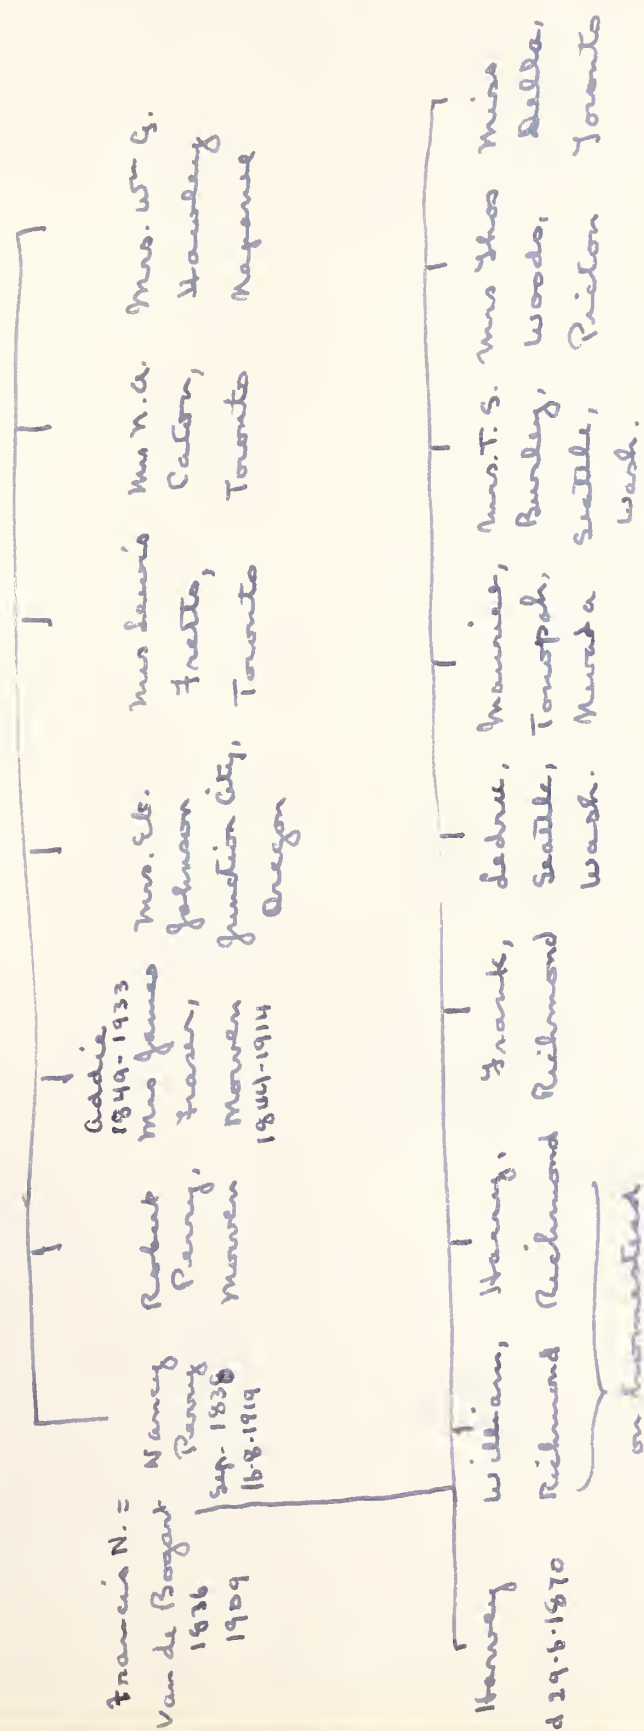 Francis N. =
Van de Bogart
1836
1909
Nancy
Perry
Sep. 1838
16-8-1919
Robert
Perry,
Morven
Addie
1849-1933
Mrs James
Fraser,
Morven
1844-1914
Mrs. Eb.
Johnson
Junction City,
Oregon
Mrs Lewis
Fretts,
Toronto
Mrs N.A.
Caton,
Toronto
Mrs. Wm G.
Hawley
Napanee
Harvey
d 29-6-1870
William,
Richmond
Harry,
Richmond
on homestead
Frank,
Richmond
Ledrue,
Seattle,
Wash.
Maurice,
Tonopah,
Nevada
Mrs. T. S.
Burley,
Seattle,
Wash.
Mrs Thos
Woods,
Picton
Miss
Della,
Toronto